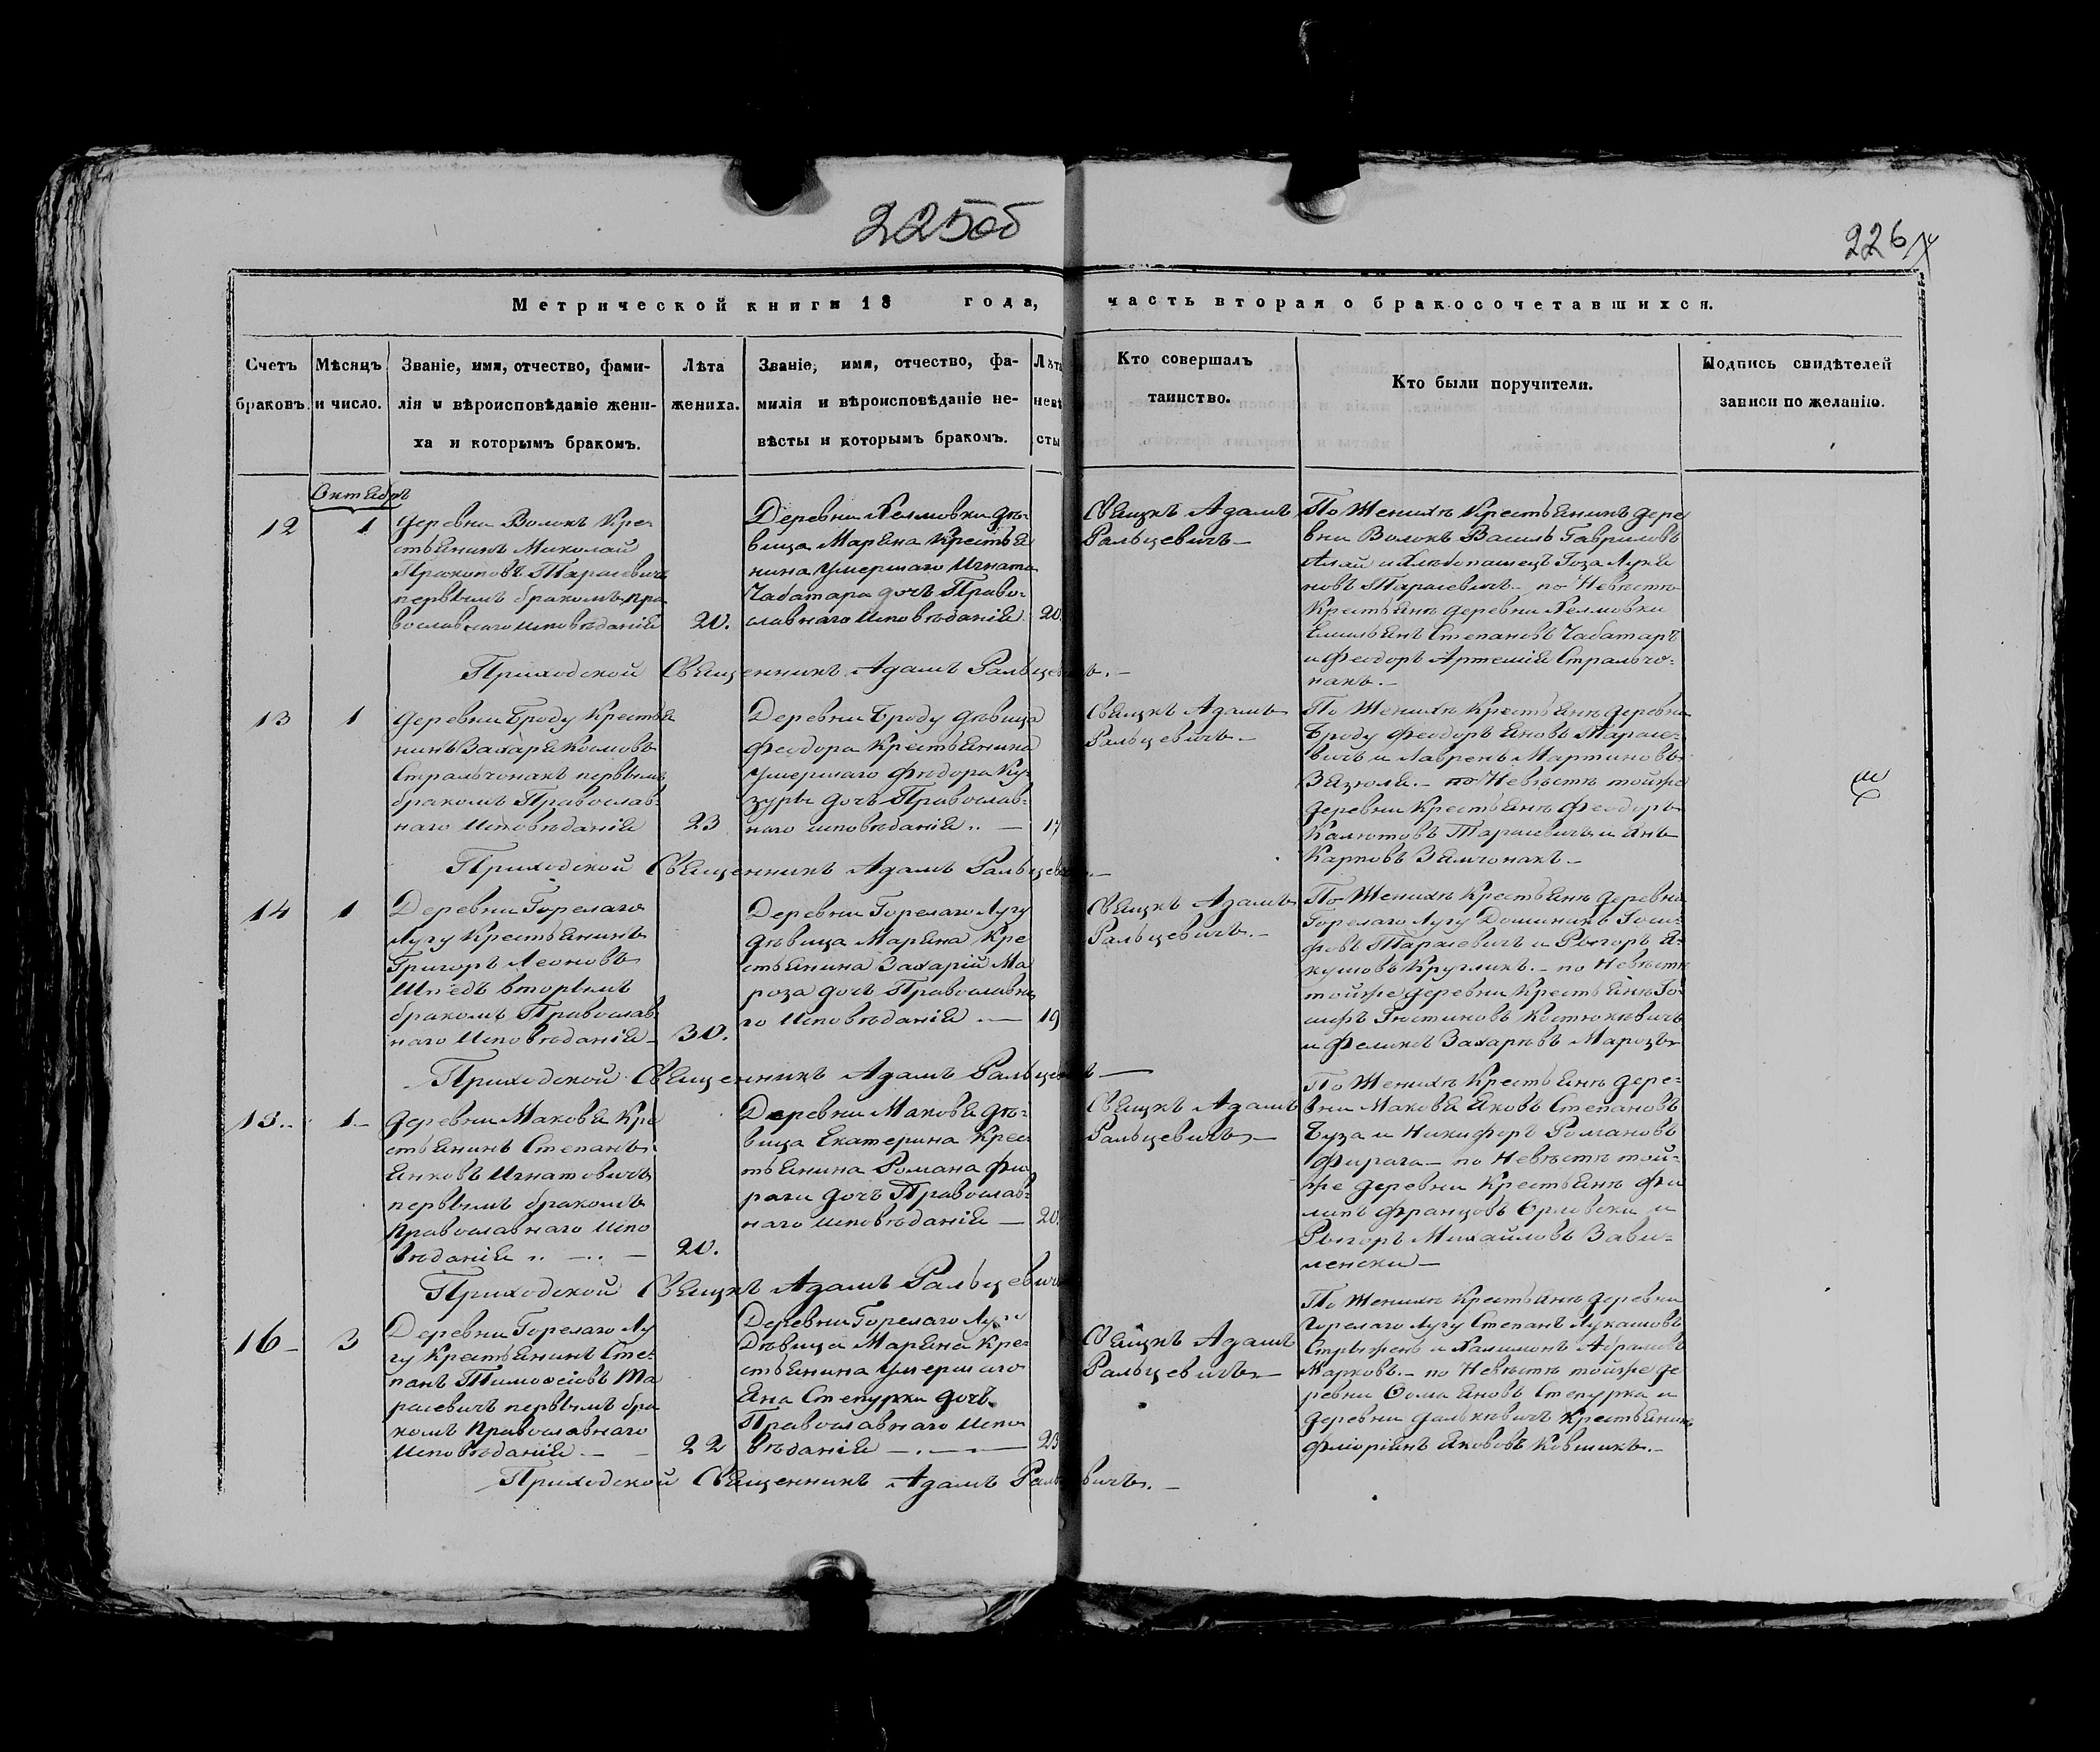 225об
226
Метрической книги 18 года, часть вторая о бракосочетавшихся.
Счетъ браковъ.
Мѣсяцъ и число.
Званіе, имя, отчество, фами-
лія и вѣроисповѣданіе жени-
ха и которымъ бракомъ.
Лѣта
жениха.
Званіе, имя, отчество, фа-
милія и вѣроисповѣданіе не-
вѣсты и которымъ бракомъ.
Лѣта
невѣ
сты
Кто совершалъ
таинство.
Кто были поручители.
Подпись свидѣтелей
записи по желанію.
Октябрь
12
1
Деревни Волокъ Кре-
стьянинъ Миколай
Пракоповъ Тарасевичъ
первымъ бракомъ пра
вославнаго исповѣданія
20.
Деревни Хелмовки дѣ-
вица Марьяна Крестья
нина умершаго Игната
Чабатара дочь Право-
славнаго исповѣданія
20.
Свящкъ Адамъ
Ральцевичъ
По Женихѣ Крестьянинъ дере
вни Волокъ Василь Гавриловъ
и Хлѣбопашецъ Лукья
новъ Тарасевичъ по Невѣстѣ
Крестьянѣ деревни Хелмовки
Емильянъ Степановъ Чабатаръ
и Феодоръ Артемія Стральчо-
накъ.
Приходской Священникъ Адамъ Ральцевичъ.
13
1
Деревни Броду Крестья
нинъ Захарья Космовъ
Стральчонакъ первымъ
бракомъ Православ-
наго исповѣданія
23
Деревни Броду дѣвица
Феодора Крестьянина
умершаго Фѣдора Ку-
зуры дочь Православ-
наго исповѣданія
17
Свящкъ Адамъ
Ральцевичъ
По Женихѣ Крестьянѣ деревни
Броду Феодоръ Яновъ Тарасе-
вичъ и Лавренъ Мартиновъ
Вязюля. по Невѣстѣ тойже
деревни Крестьянѣ Феодоръ
Тарасевичъ и Янъ
Карповъ
Приходской Священникъ Адамъ Ральцевичъ
14
1
Деревни Горелаго
Лугу Крестьянинъ
Григоръ Леоновъ
Шпедъ вторымъ
бракомъ Православ-
наго исповѣданія
30.
Деревни Горелаго Лугу
дѣвица Марьяна Кре
стьянина Захарій Ма
роза дочь Православна
го исповѣданія
19
Свящкъ Адамъ
Ральцевичъ.
По Женихѣ Крестьянѣ деревни
Горелаго Лугу Доминикъ Іоси-
фовъ Тарасевичъ и Рыгоръ Я-
кушовъ Кругликъ. по Невѣстѣ
тойже деревни Крестьянѣ Іо-
сифъ Іюстиновъ Костюкѣвичъ
и Феликсъ Захарѣвъ Марозъ
Приходской Священникъ Адамъ Ральцевичъ
15.
1
Деревни Маковья Кре
стьянинъ Степанъ
Янковъ Игнатовичъ
первымъ бракомъ
Православнаго испо
вѣданія
20.
Деревни Маковья дѣ-
вица Екатерина Крес
тьянина Романа Фи
раги дочь Православ-
наго исповѣданія
20.
Свящкъ Адамъ
Ральцевичъ
По Женихѣ Крестьянѣ дере-
вни Маковья Яковъ Степановъ
Буза и Никифоръ Романовъ
Фирага по Невѣстѣ той-
же деревни Крестьянѣ Фи
липъ Францовъ Орловски и
Рыгоръ Михайловъ Зави-
ленски
Приходской Свящкъ Адамъ Ральцевичъ
16
3
Деревни Горелаго Лу
гу Крестьянинъ Сте-
панъ Тимоѳеіовъ Та
расевичъ первымъ бра
комъ Православнаго
исповѣданія.
22
Деревни Горелаго Лугу
Дѣвица Марьяна Кре-
стьянина умершаго
Яна Степурки дочь
Православнаго испо
вѣданія
23
Свящкъ Адамъ
Ральцевичъ
По Женихѣ Крестьянѣ деревни
Горелаго Лугу Степанъ Лукашовъ
Стрыжень и Халимонъ Абрамовъ
Жарковъ. по Невѣстѣ тойже де
ревни Ѳома Яновъ Степурка и
деревни Крестьянинъ
Флюріянъ Якововъ Ковшикъ.
Приходской Священникъ Адамъ Ральцевичъ.